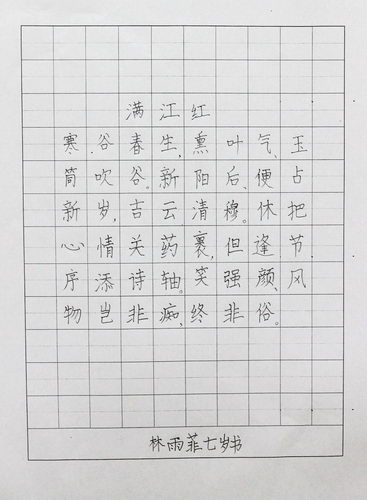 满江红
寒谷春生,熏叶气、玉
筒吹谷。新阳后、便占
新岁,吉云清穆。休把
心情关药裹,但逢节
序添诗轴。笑强颜、风
物岂非痴,终非俗。
林雨菲七岁书